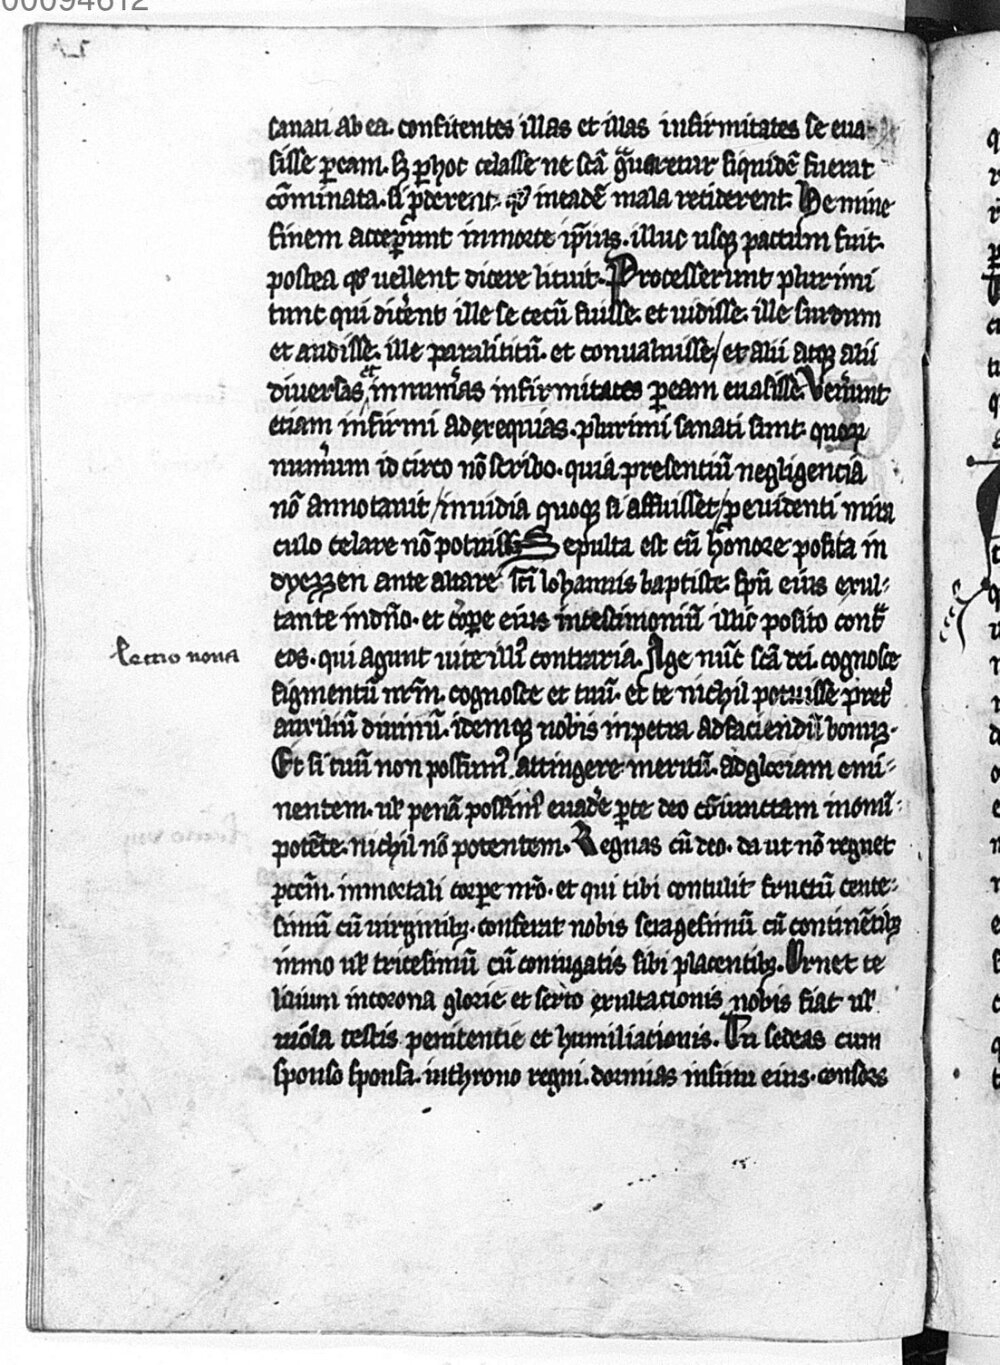 00094612
sanati ab ea. confitentes illas et illas infirmitates se eua
sisse ꝑ eam. sꝫ ꝑ hoc celasse ne scā g̃uaretur siquidē fuerat
cōminata. si ꝓderent. qđ in eadē mala reciderent. He mine
finem acceꝑunt in morte ip̄ius. illuc usqꝫ pactum fuit.
postea qđ uellent dicere licuit. Processerunt plurimi
tunc qui dic̄ent ille se cecū fuisse. et uidisse. ille surdum
et audisse. ille paraliticū. et conualuisse / et alii atqꝫ alii
diuersas et innum̄as infirmitates ꝑ eam euasisse. Ven̄unt
etiam infirmi ad exequias. plurimi sanati sunt. quoꝝ
num̄um id circo nō scribo. quia presentiū negligencia
nō annotauit / inuidia quoqꝫ si affuisset / ꝑ euidenti mira
culo celare nō potuisset Sepulta est cū honore posita in
dyezzen ante altare sc̄i Iohannis baptiste. sp̄u eius exul-
tante in dn̄o. et corꝑe eius in testimoniū illic posito cont̄
eos. qui agunt uite illi' contraria. Age nūc scā dei. cognosce
figmentū nr̄m. cognosce et tuū. et te nichil potuisse pret̄
auxiliū diuinū. idemqꝫ nobis inpetra ad faciendū bonuꝫ.
Et si tuū non possum' attingere meritū. ad gloriam emi-
nentem. ul' penā possim' euad̄e ꝑ te deo cōiunctam in omi-
potēte. nichil nō potentem. Regnas cū deo. da ut nō regnet
pccm̄. in mortali corꝑe nr̄o. et qui tibi contulit fructū cente-
simū cū uirginibꝫ. conferat nobis sexagesimū cū continētibꝫ
immo ul' tricesimū cū coniugatis sibi placentibꝫ. Ornet te
lilium in corona glorie et serto exultacionis nobis fiat ul'
uiola testis penitentie et humiliacionis. Tu sedeas cum
sponso sponsa. in throno regni. dormias in sinu eius. consors
lectio nona